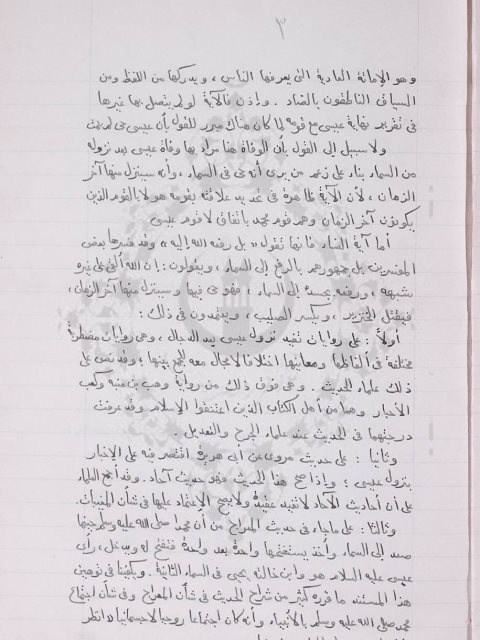 ٣
وهو الإماتة العادية التى يعرفها الناس ، ويدركها من اللفظ ومن
السياق الناطقون بالضاد . وإذن فالآية لو لم يتصل بها غيرها
فى تقرير نهاية عيسى مع قومه لما كان هناك مبرر للقول بأن عيسى حى لم يمت
ولا سبيل إلى القول بأن الوفاة هنا مراد بها وفاة عيسى بعد نزوله
من السماء بناء على زعم من يرى أنه حى فى السماء ، وأنه سينزل منها آخر
الزمان ، لأن الآية ظاهرة فى تحديد علاقته بقومه هو لا بالقوم الذين
يكونون آخر الزمان وهم قوم محمد باتفاق لا قوم عيسى
أما آية النساء فإنها تقول « بل رفعه الله إليه » وقد فسرها بعض
المفسرين بل جمهورهم بالرفع إلى السماء ، ويقولون : إن الله ألقى على غيره
شبهه ، ورفعه بجسده إلى السماء ، فهو حى فيها وسينزل منها آخر الزمان ،
فيقتل الخنزير ، ويكسر الصليب ، ويعتمدون فى ذلك :
أولاً : على روايات تفيد نزول عيسى بعد الدجال ، وهى روايات مضطربة
مختلفة فى ألفاظها ومعانيها اختلافا لا مجال معه للجمع بينها ، وقد نص على
ذلك علماء الحديث . وهى فوق ذلك من رواية وهب بن منبه وكعب
الأحبار وهما من أهل الكتاب الذين اعتنقوا الإسلام وقد عرفت
درجتهما فى الحديث عند علماء الجرح والتعديل .
وثانياً : على حديث مروى عن أبى هريرة اقتصر فيه على الإخبار
بنزول عيسى ؛ وإذا صح هذا الحديث فهو حديث آحاد . وقد أجمع العلماء
على أن أحاديث الآحاد لا تفيد عقيدة ولا يصح الاعتماد عليها فى شأن المغيبات .
وثالثاً : على ما جاء فى حديث المعراج من أن محمدا صلى الله عليه وسلم حينما
صعد إلى السماء وأخذ يستفتحها واحدة بعد واحدة فتفتح له ويدخل ، رأى
عيسى عليه السلام هو وابن خالته يحيى فى السماء الثانية . ويكفينا فى توهين
هذا المستند ما قرره كثير من شراح الحديث فى شأن المعراج وفى شأن اجتماع
محمد صلى الله عليه وسلم بالأنبياء وأنه كان اجتماعا روحيا لا جسمانيا « انظر